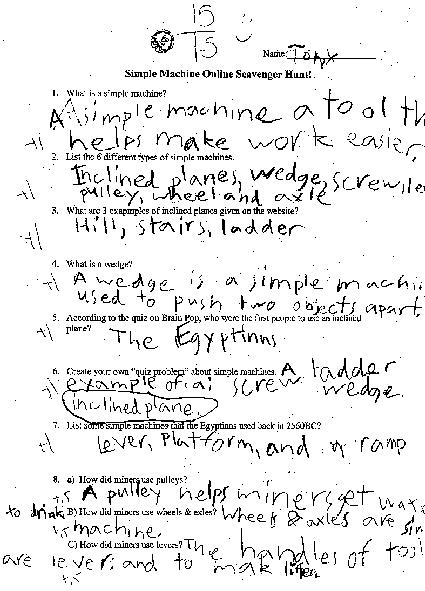 15
15
Name: Tony
Simple Machine Online Scavenger Hunt!
1. What is a simple machine?
A simple machine a tool th
+1 helps make work easier,
2. List the 6 different types of simple machines.
+1 Inclined planes, wedge, screw, le
pulley, wheel and axle
3. What are 3 examples of inclined planes given on the website?
+1 Hill, stairs, ladder
4. What is a wedge?
+1 A wedge is a simple machi
used to push two objects apart
5. According to the quiz on Brain Pop, who were the first people to use an inclined
plane?
+1 The Egyptians
6. Create your own "quiz problem" about simple machines. A ladder
+1 example of a: screw wedge
inclined plane.
7. List some simple machines that the Egyptians used back in 2560BC?
+1 lever, Platform, and a ramp
8. a) How did miners use pulleys?
+.5 A pulley helps miners get wat
to drink B) How did miners use wheels & axles? Wheels & axles are sim
+.5 machine.
C) How did miners use levers? The handles of tool
are lever; and to make
+.5